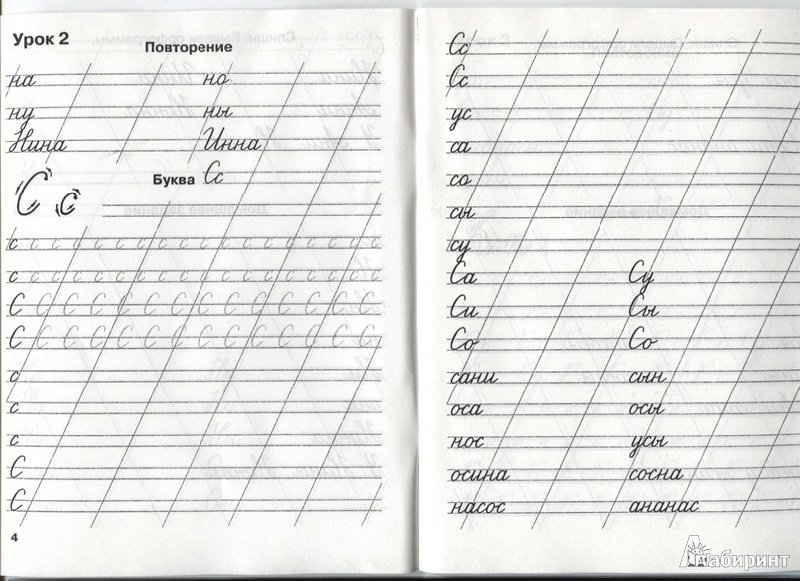 Урок 2
Повторение
на но
ну ны
Нина Инна
Буква Сс
С с
с с с с с с с с с с с с с с с с с с
с с с с с с с с с с с с с с с с с с
С С С С С С С С С С С С С С
С С С С С С С С С С С С С С
с
с
с
С
С
4
Сс
Сс
ус
са
со
сы
су
Са Су
Си Сы
Со Со
сани сын
оса осы
нос усы
осина сосна
насос ананас
Лабиринт